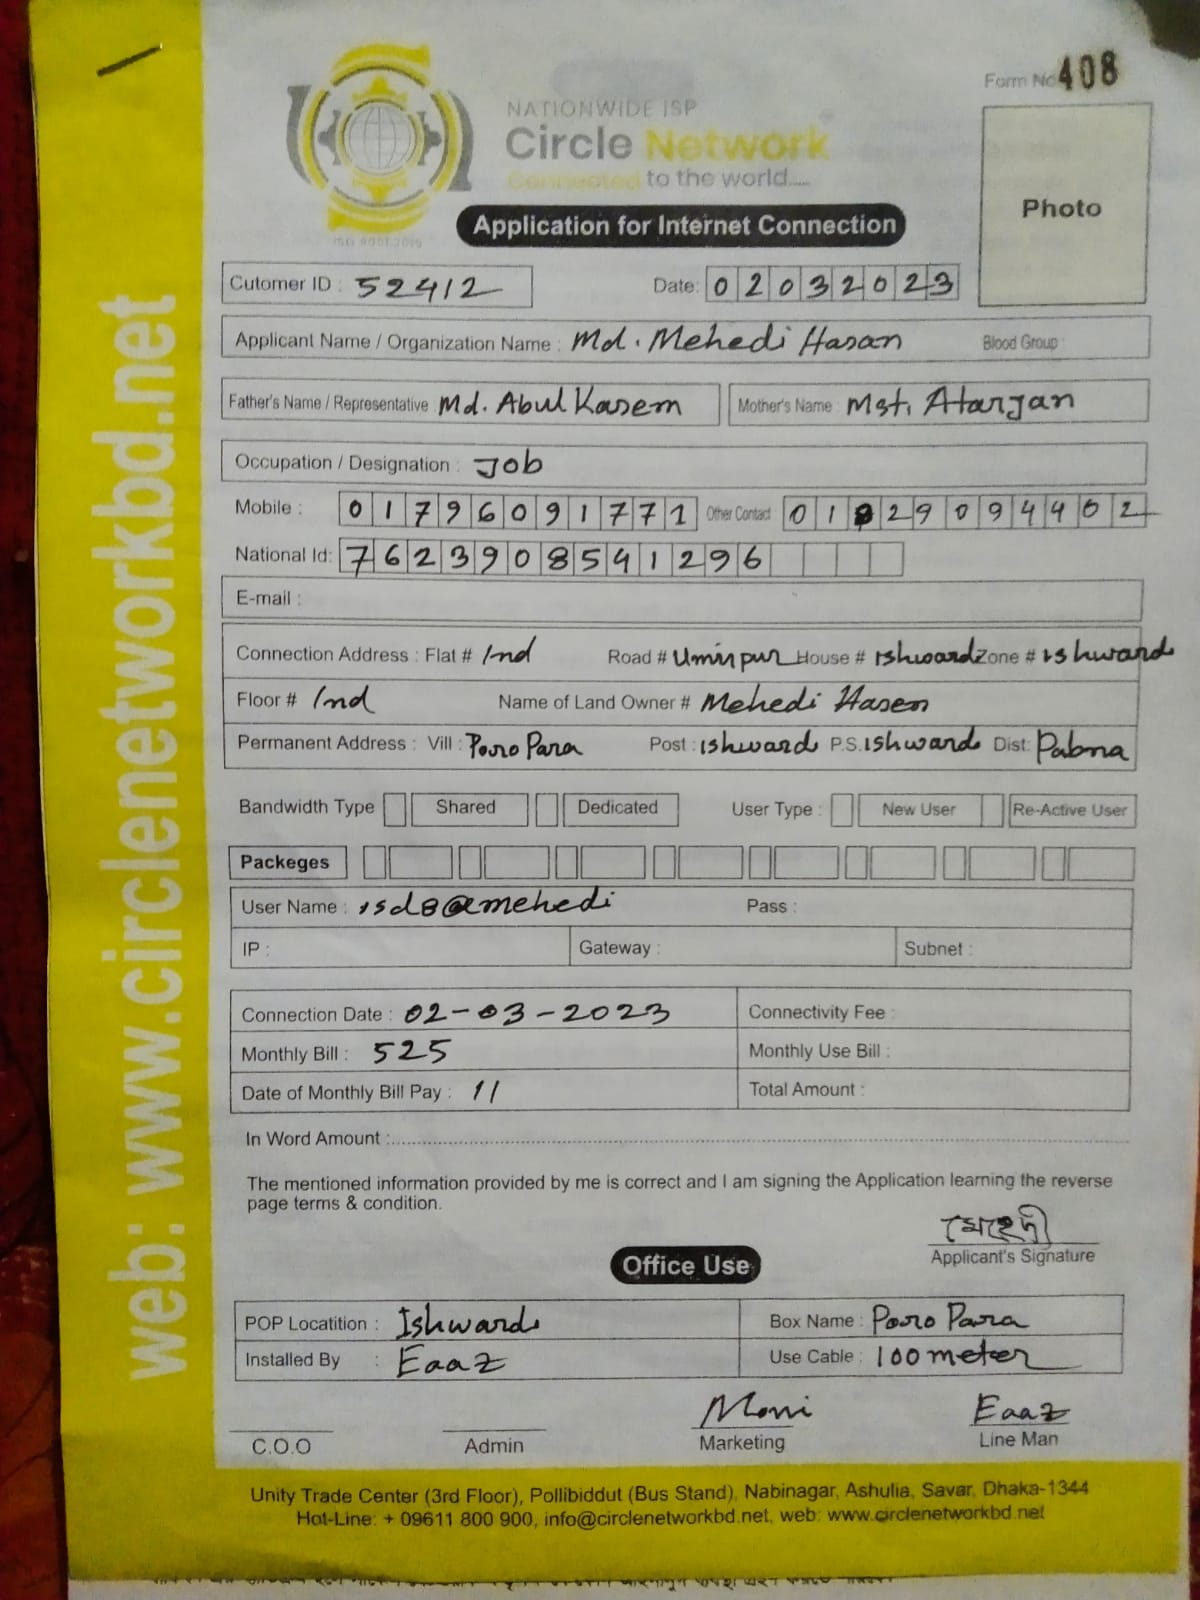 Form No 408
NATIONWIDE ISP
Circle Network
Connected to the world.....
ISO 9001:2015
Application for Internet Connection
Photo
Cutomer ID : 52412 Date: 02032023
Applicant Name / Organization Name : Md. Mehedi Hasan Blood Group :
Father's Name / Representative : Md. Abul Kasem Mother's Name : Mst. Atarjan
Occupation / Designation : Job
Mobile : 01796091771 Other Contact 01829094402
National Id: 7623908541296
E-mail :
Connection Address : Flat # 1nd Road # Umirpur House # Ishwardi Zone # Ishwardi
Floor # 1nd Name of Land Owner # Mehedi Hasen
Permanent Address : Vill : Poro Para Post : Ishwardi P.S. Ishwardi Dist: Pabna
Bandwidth Type Shared Dedicated User Type : New User Re-Active User
Packeges
User Name : isd8@mehedi Pass :
IP : Gateway : Subnet :
Connection Date : 02-03-2023 Connectivity Fee :
Monthly Bill : 525 Monthly Use Bill :
Date of Monthly Bill Pay : 11 Total Amount :
In Word Amount :
The mentioned information provided by me is correct and I am signing the Application learning the reverse
page terms & condition.
মেহেদী
Applicant's Signature
Office Use
POP Locatition : Ishwardi Box Name : Poro Para
Installed By : Eaaz Use Cable : 100 meter
Moni Eaaz
C.O.O Admin Marketing Line Man
Unity Trade Center (3rd Floor), Pollibiddut (Bus Stand), Nabinagar, Ashulia, Savar, Dhaka-1344
Hot-Line: + 09611 800 900, info@circlenetworkbd.net, web: www.circlenetworkbd.net
web: www.circlenetworkbd.net